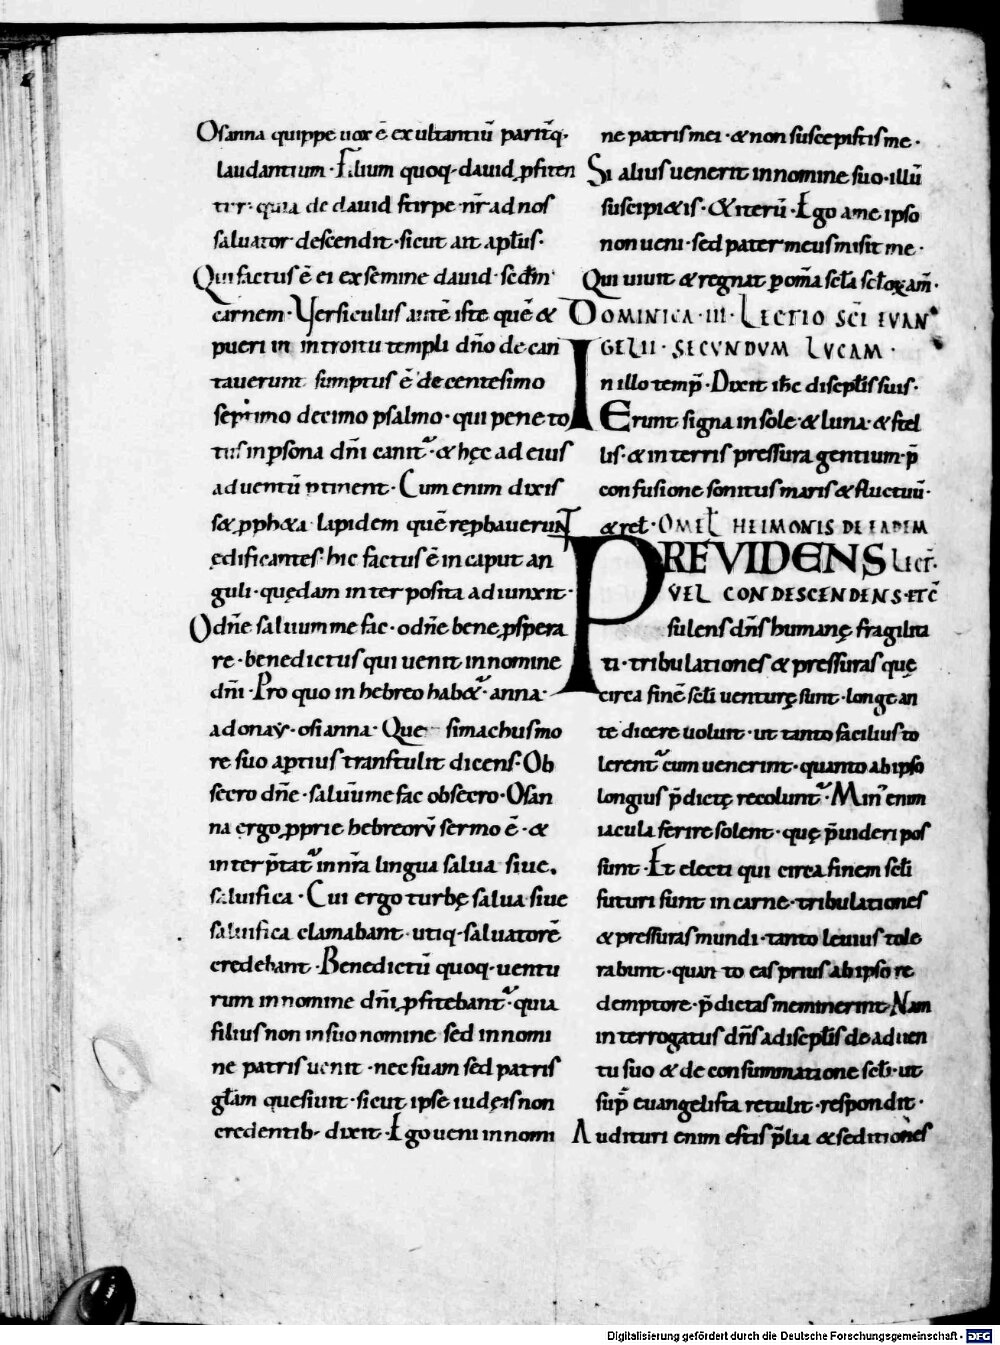 Osanna quippe uox ē exultantiū parit̄q·
laudantium · Filium quoq· dauid ꝓfiten
tur· quia de dauid stirpe nr̄ ad nos
saluator descendit · sicut ait apl̄us·
Qui factus ē ei ex semine dauid · secd̄m
carnem · Versiculus autē iste quē &
pueri in introitu templi dn̄o de can
tauerunt sumptus ē de centesimo
septimo decimo psalmo · qui pene to
tus in ꝑsona dn̄i canit᷑ · & hęc ad eius
aduentū ꝑtinent · Cum enim dixis
s& ꝓph&a · lapidem quē reꝓbauerunt
ędificantes · hic factus ē in caput an
guli · quędam interposita adiunxit ·
O dn̄e saluum me fac · o dn̄e bene ꝓspera
re · benedictus qui uenit in nomine
dn̄i · Pro quo in hebreo hab&᷑ · anna
adonaẏ · osianna · Que simachus mo
re suo aptius transtulit dicens · Ob
secro dn̄e · saluū me fac obsecro · Osan
na ergo ꝓprie hebreorū sermo ē · &
interp̄tat᷑ in nr̄a lingua salua siue
saluifica · Cui ergo turbę salua siue
saluifica clamabant · utiq· saluatorē
credebant · Benedictū quoq· uentu
rum in nomine dn̄i ꝓfitebant᷑ · quia
filius non in suo nomine sed in nomi
ne patris uenit · nec suam sed patris
gl̄am quesiuit · sicut ipse iudęis non
credentib· dixit · Ego ueni in nomi
ne patris mei · & non suscepistis me ·
Si alius uenerit in nomine suo · illū
suscipi&is · & iterū · Ego a me ipso
non ueni · sed pater meus misit me ·
Qui uiuit & regnat ꝑ om̄a scl̄a scl̄oꝝ am̄ ·
DOMINICA · III · LECTIO SC̄I EVAN
GELII · SECVNDVM LVCAM ·
In illo temp̄ · Dixit ih̄c discipl̄is suis ·
Erunt signa in sole · & luna · & stel
lis · & in terris pressura gentium · p̄
confusione sonitus maris & fluctuū ·
& rel̄ · OMEL̄ HEIMONIS DE EADEM
PREVIDENS Lect̄·
VEL CONDESCENDENS · ETC̄
sulens dn̄s humanę fragilita
ti · tribulationes & pressuras quę
circa finē scl̄i venturę sunt · longe an
te dicere uoluit · ut tanto facilius to
lerent᷑ cum uenerint · quanto ab ipso
longius p̄dictę recolunt᷑ · Min᷒ enim
iacula ferire solent · quę p̄uideri pos
sunt · Et electi qui circa finem scl̄i
futuri sunt in carne · tribulationes
& pressuras mundi · tanto leuius tole
rabunt · quanto eas prius ab ipso re
demptore · p̄dictas meminerint · Nam
interrogatus dn̄s a discipl̄is de aduen
tu suo & de consummatione scl̄i · ut
sup̄ euangelista retulit · respondit ·
Audituri enim estis p̄lia & seditiones
Digitalisierung gefördert durch die Deutsche Forschungsgemeinschaft · DFG